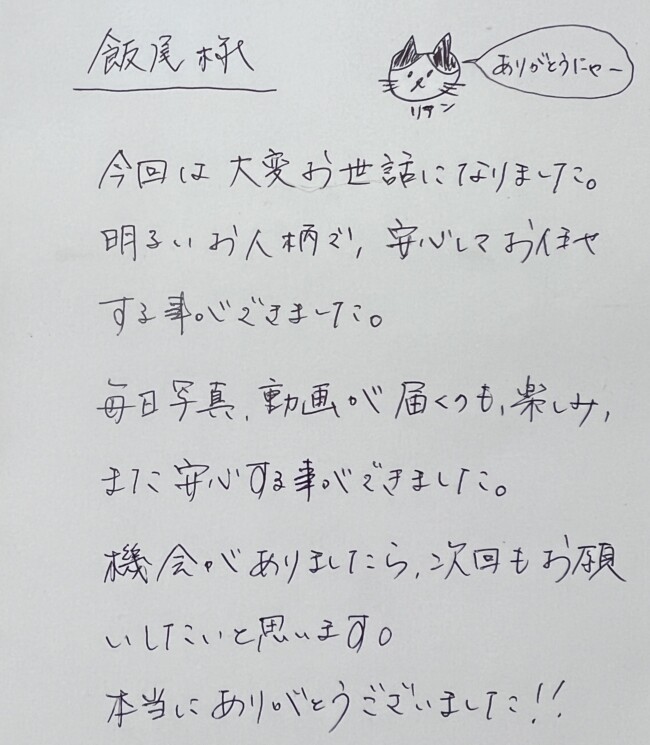 飯尾様
ありがとうにゃー
リアン
今回は大変お世話になりました。
明るいお人柄で、安心してお任せ
する事ができました。
毎日写真、動画が届くのも、楽しみ、
また安心する事ができました。
機会がありましたら、次回もお願
いしたいと思います。
本当にありがとうございました!!